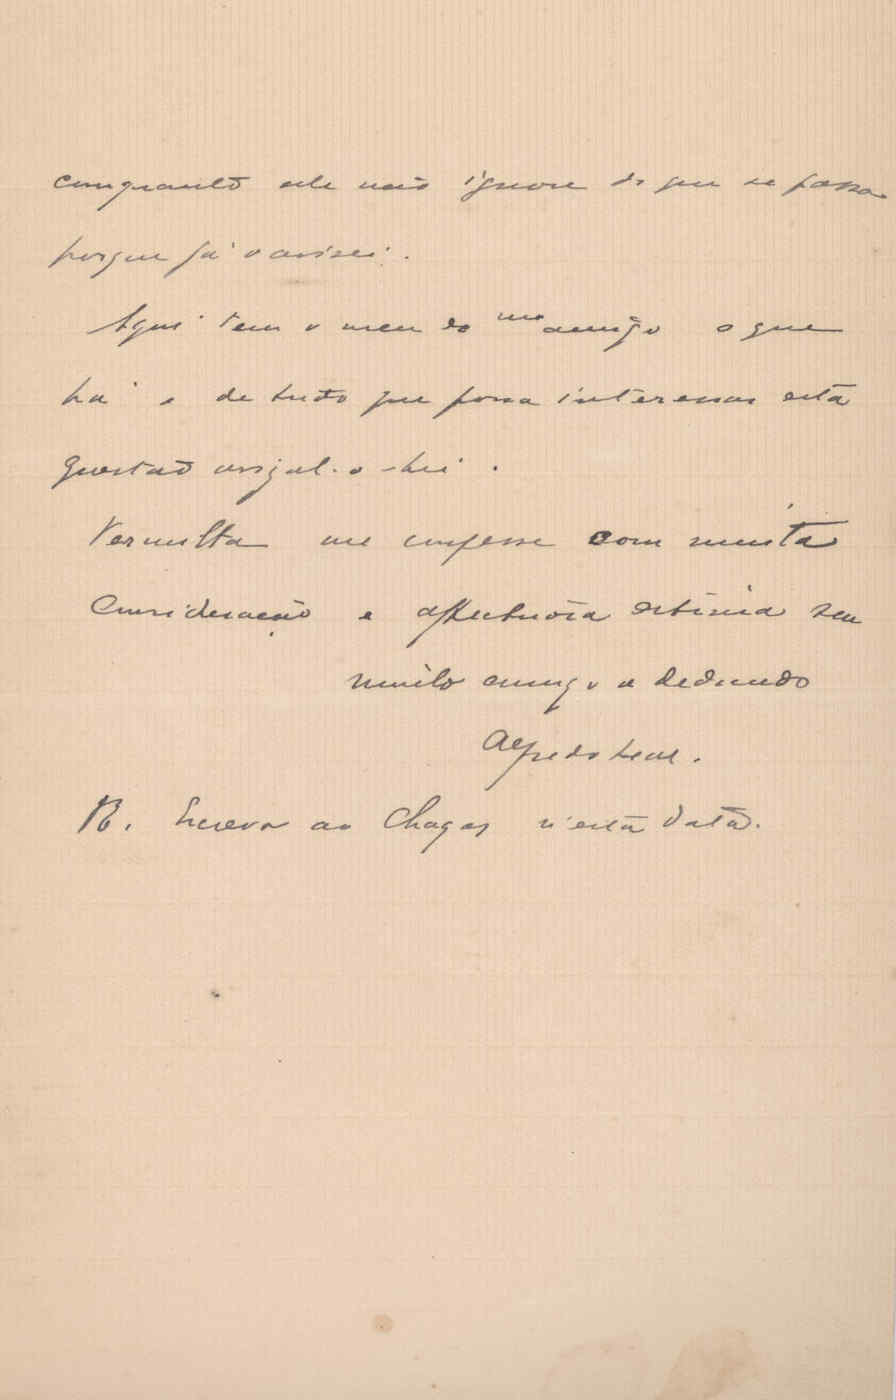 comquanto elle não ignore do que se passa
porque já o avisei.
Aqui tem o meu bo mo amigo o que
há e de tudo que possa interessar esta
questão avisal-o-hei.
Permitta me confesse com muita
Consideração e affectuosa estima seu
muito amigo e dedicado
Alfredo Leal.
Escrevo ao Chagas n'esta data.